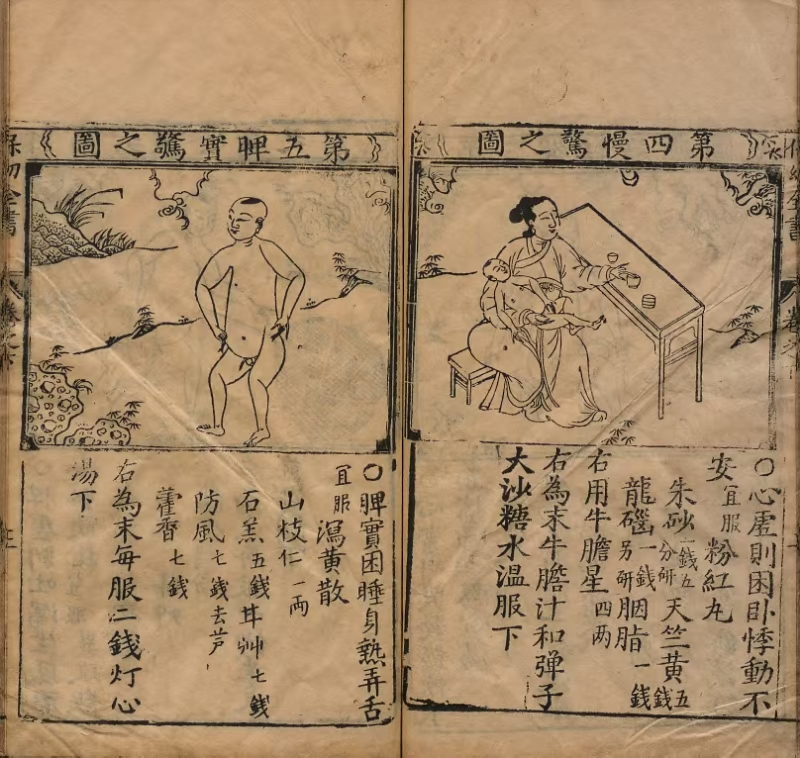 第四慢驚之圖
〇心虛則困卧悸動不
安宜服粉紅丸
朱砂一錢五分研天竺黃五錢
龍碯一錢另研胭脂一錢
右用牛膽星四两
右為末牛膽汁和弹子
大沙糖水温服下
第五脾實驚之圖
〇脾實困睡身熱弄舌
宜服瀉黃散
山枝仁一两
石羔五錢甘艸七錢
防風七錢去芦
藿香七錢
右為末每服二錢灯心
湯下
幼全書